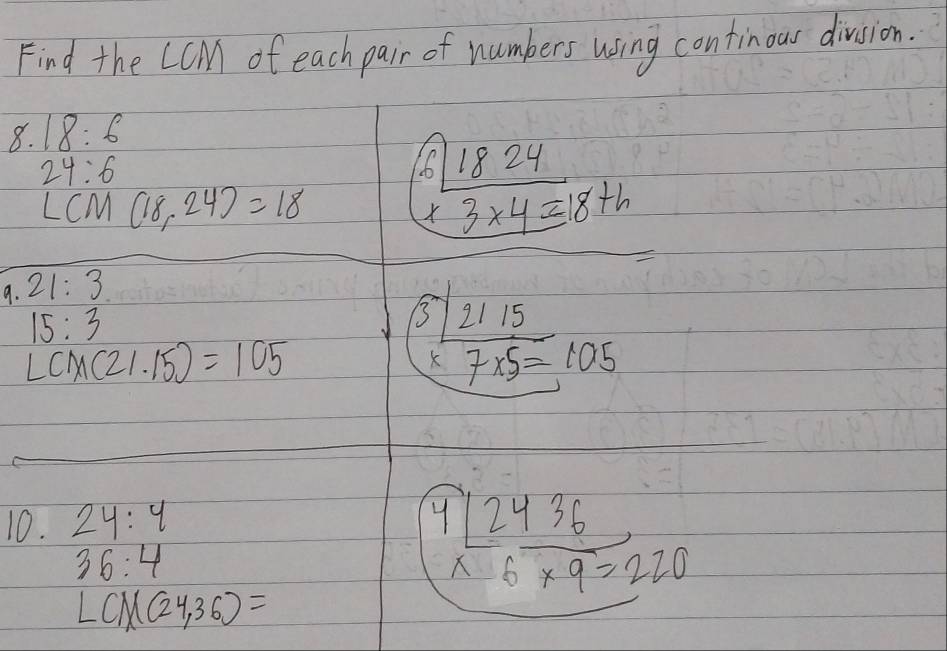 Find the LCM of each pair of numbers using continous division.
8. 18 : 6
24 : 6
LCM (18, 24) = 18
6 18 24
x 3 x 4 = 18th
9. 21 : 3
15 : 3
LCM (21.15) = 105
3 21 15
x 7 x 5 = 105
10. 24 : 4
36 : 4
LCM (24,36) =
4 24 36
x 6 x 9 = 220